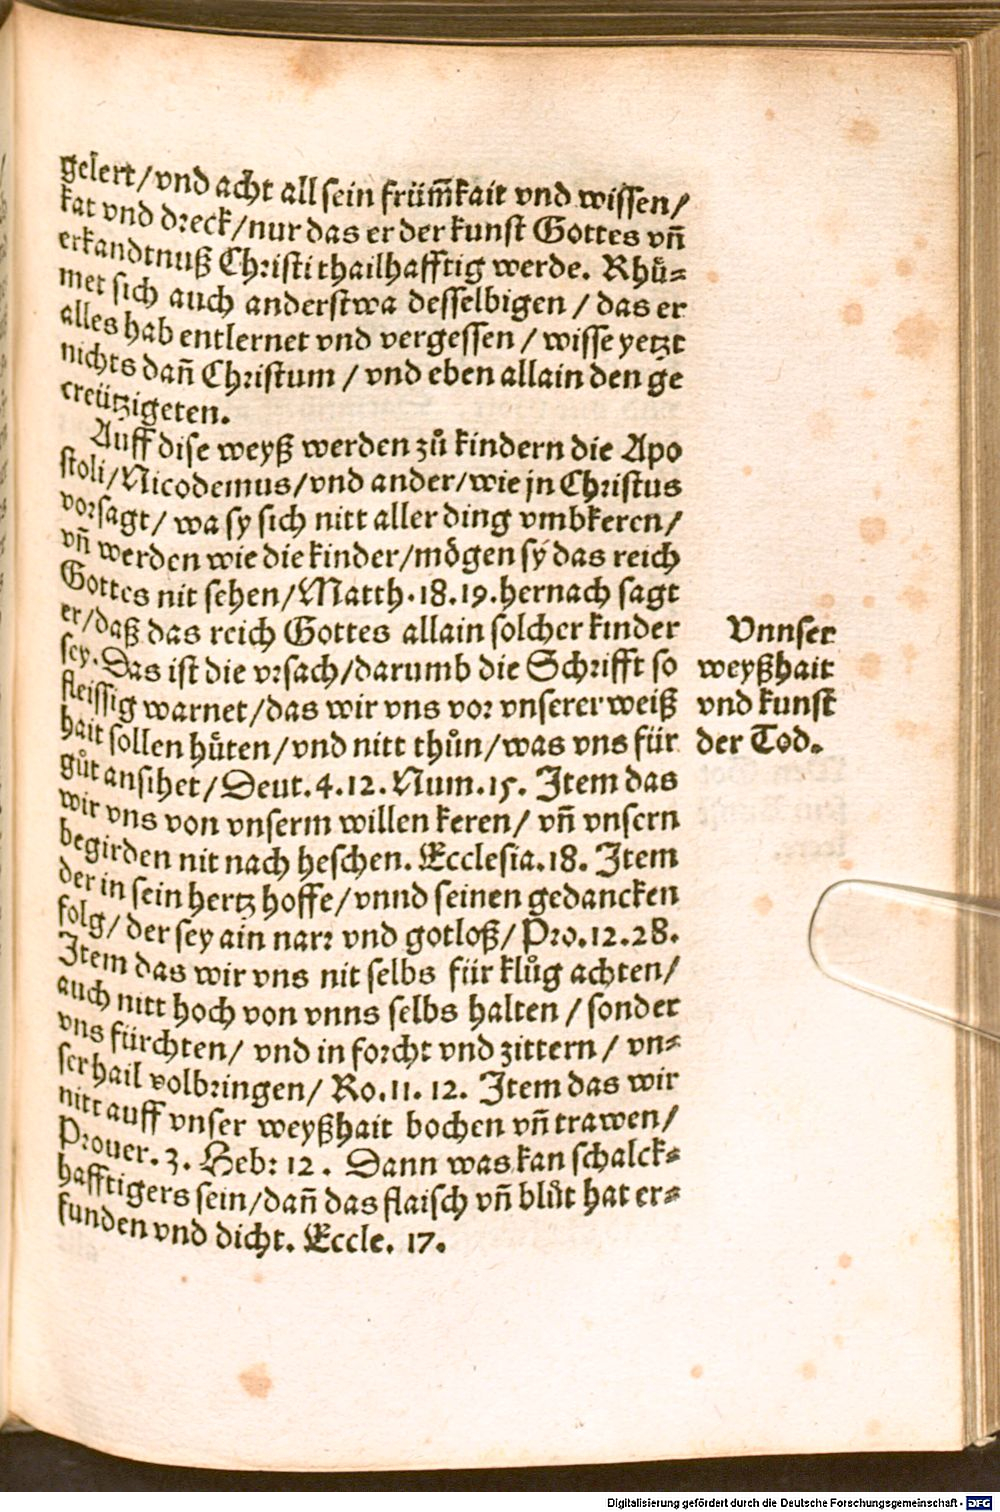 gelert/vnd acht all sein frümkait vnd wissen/
kat vnd dreck/nur das er der kunst Gottes vñ
erkandtnuß Christi thailhafftig werde. Rhuͤ⸗
met sich auch anderstwa desselbigen / das er
alles hab entlernet vnd vergessen / wisse yetzt
nichts dañ Christum / vnd eben allain den ge
creützigeten.
Auff dise weyß werden zuͦ kindern die Apo
stoli/Nicodemus/vnd ander/wie jn Christus
vorsagt/ wa sy sich nitt aller ding vmbkeren/
vñ werden wie die kinder/moͤgen sy das reich
Gottes nit sehen/Matth.18.19.hernach sagt
er/daß das reich Gottes allain solcher kinder
sey. Das ist die vrsach/darumb die Schrifft so
fleissig warnet/das wir vns vor vnserer weiß
hait sollen huͤten/vnd nitt thuͦn/was vns für
guͦt ansihet/Deut.4.12.Num.15. Item das
wir vns von vnserm willen keren/ vñ vnsern
begirden nit nach heschen. Ecclesia.18. Item
der in sein hertz hoffe/vnnd seinen gedancken
folg/ der sey ain narr vnd gotloß/Pro.12.28.
Item das wir vns nit selbs für kluͦg achten/
auch nitt hoch von vnns selbs halten / sonder
vns fürchten/ vnd in forcht vnd zittern / vn⸗
ser hail volbringen/ Ro.11. 12. Item das wir
nitt auff vnser weyßhait bochen vñ trawen/
Prouer. 3. Hebr: 12. Dann was kan schalck⸗
hafftigers sein/dañ das flaisch vñ bluͦt hat er⸗
funden vnd dicht. Eccle. 17.
Vnnser
weyßhait
vnd kunst
der Tod.
Digitalisierung gefördert durch die Deutsche Forschungsgemeinschaft - DFG